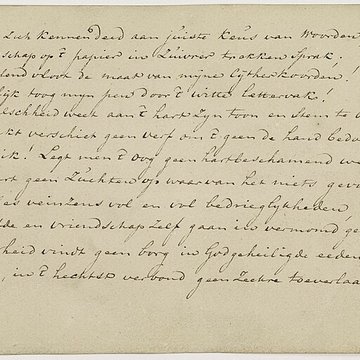 Zich kennend aan juiste keus van Woorden
schap op 't papier in Zuivrer trekken sprak,
lend vlood de maat van mijne cijtherkoorden!
lijk toog mijn pen door 't witte lettervak!
alschheid weet aan 't hart zijn toon en stem te
kt verschiet geen verf om 't geen de hand
ik! Legt men 't oog geen hartbeschamend
ert geen Zuchten op waarvan het niets
es veinzens vol en vol bedrieglijkheden,
de en vriendschap Zelf gaan in vermomd
heid vindt geen borg in Godgeheiligde eeden
, in 't hechtst verbond geen Zeekre toeverlaa